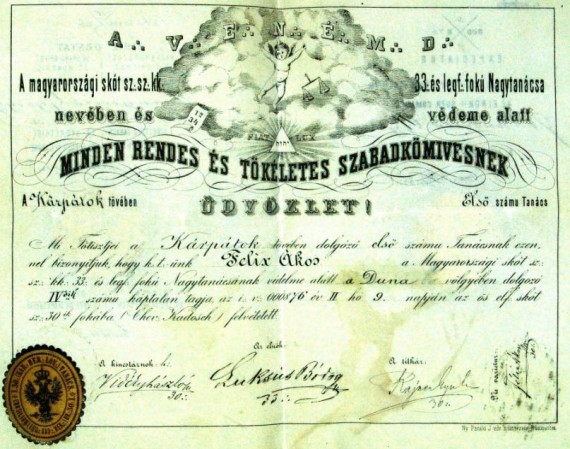 A∴ V∴ E∴ N∴ É∴ M∴ D∴
A magyarországi skót sz∴ sz∴ kk∴ 33∴ és legf∴ fokú Nagytanácsa
nevében és védeme alatt
FIAT LUX
MINDEN RENDES ÉS TÖKÉLETES SZABADKÖMIVESNEK
A Kárpátok tövében Első számu Tanács
ÜDVÖZLET!
Mi Főtisztjei a Kárpátok tövében dolgozó első számu Tanácsnak ezen-
nel bizonyitjuk, hogy k∴ t∴ ünk Felix Ákos a Magyarországi skót sz∴
sz∴ kk∴ 33∴ és legf∴ fokú Nagytanácsának védelme alatt a Duna völgyében dolgozó
IV∴ számu káptalan tagja, az i∴ v∴ 000876 év II hó 9∴ napján az ős elf∴ skót
sz∴ 30∴ fokába (Chev∴ Kadosch) felvétetett.
Az elnök:
A kincstárnok: A titkár:
30∴ 33∴ 30∴